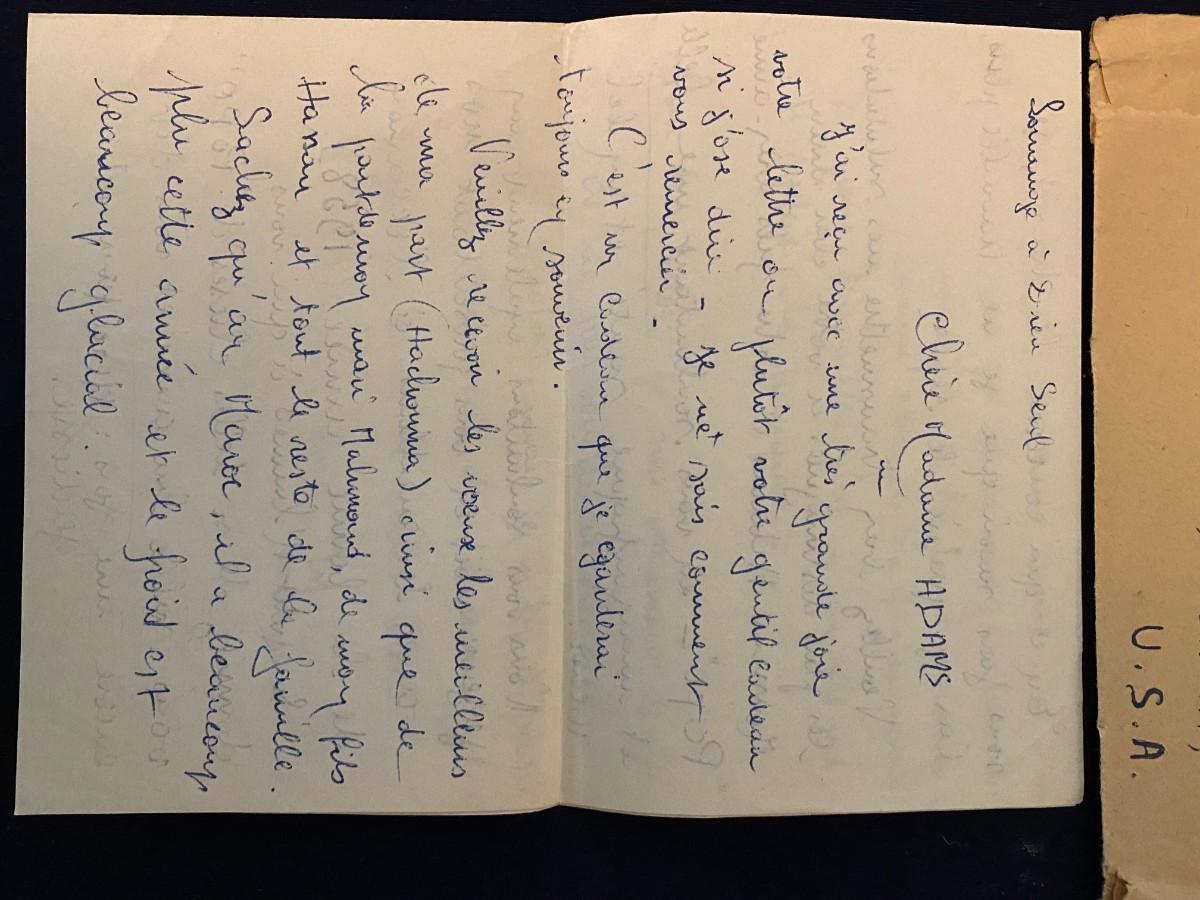 Louange à Dieu Seul
Chère Madame ADAMS
J'ai reçu avec une très grande joie
votre lettre ou plutôt votre gentil cadeau
si j'ose dire - je ne sais comment
vous remercier.
C'est un cadeau que je garderai
toujours en souvenir.
Veuillez recevoir les vœux les meilleurs
de ma part (Hachouma) ainsi que de
la part de mon mari Mahmoud, de mon fils
Hassan et tout le reste de la famille.
Sachez qu'au Maroc, il a beaucoup
plu cette année et le froid est
beaucoup glacial.
U.S.A.